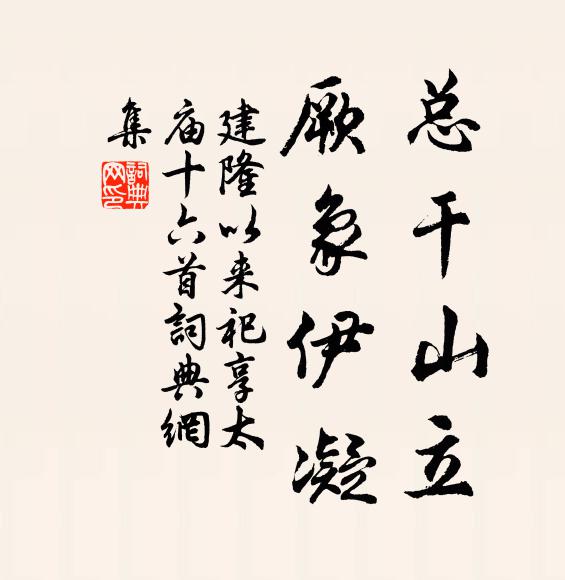 总干山立
厥象伊凝
建隆以来祀享太
庙十六首詞典網
集
詞典
网印